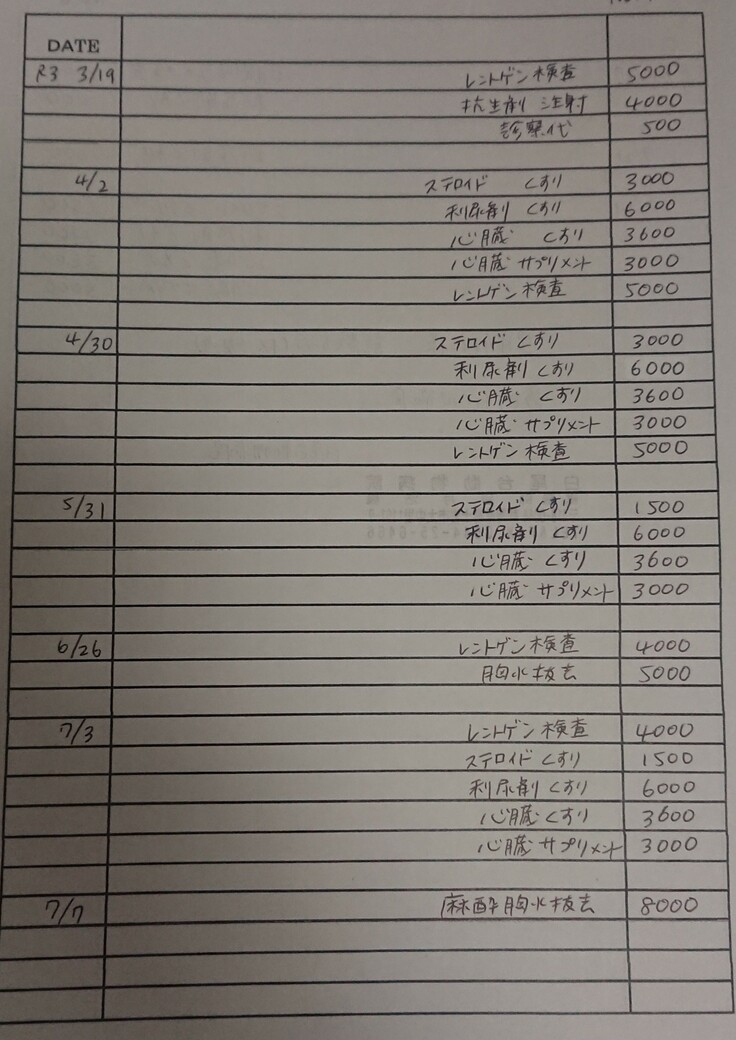 DATE
R3 3/19 レントゲン検査 5000
抗生剤 注射 4000
診察代 500
4/2 ステロイド くすり 3000
利尿剤 くすり 6000
心臓 くすり 3600
心臓 サプリメント 3000
レントゲン 検査 5000
4/30 ステロイド くすり 3000
利尿剤 くすり 6000
心臓 くすり 3600
心臓 サプリメント 3000
レントゲン 検査 5000
5/31 ステロイド くすり 1500
利尿剤 くすり 6000
心臓 くすり 3600
心臓 サプリメント 3000
6/26 レントゲン 検査 4000
胸水抜去 5000
7/3 レントゲン 検査 4000
ステロイド くすり 1500
利尿剤 くすり 6000
心臓 くすり 3600
心臓 サプリメント 3000
7/7 麻酔胸水抜去 8000